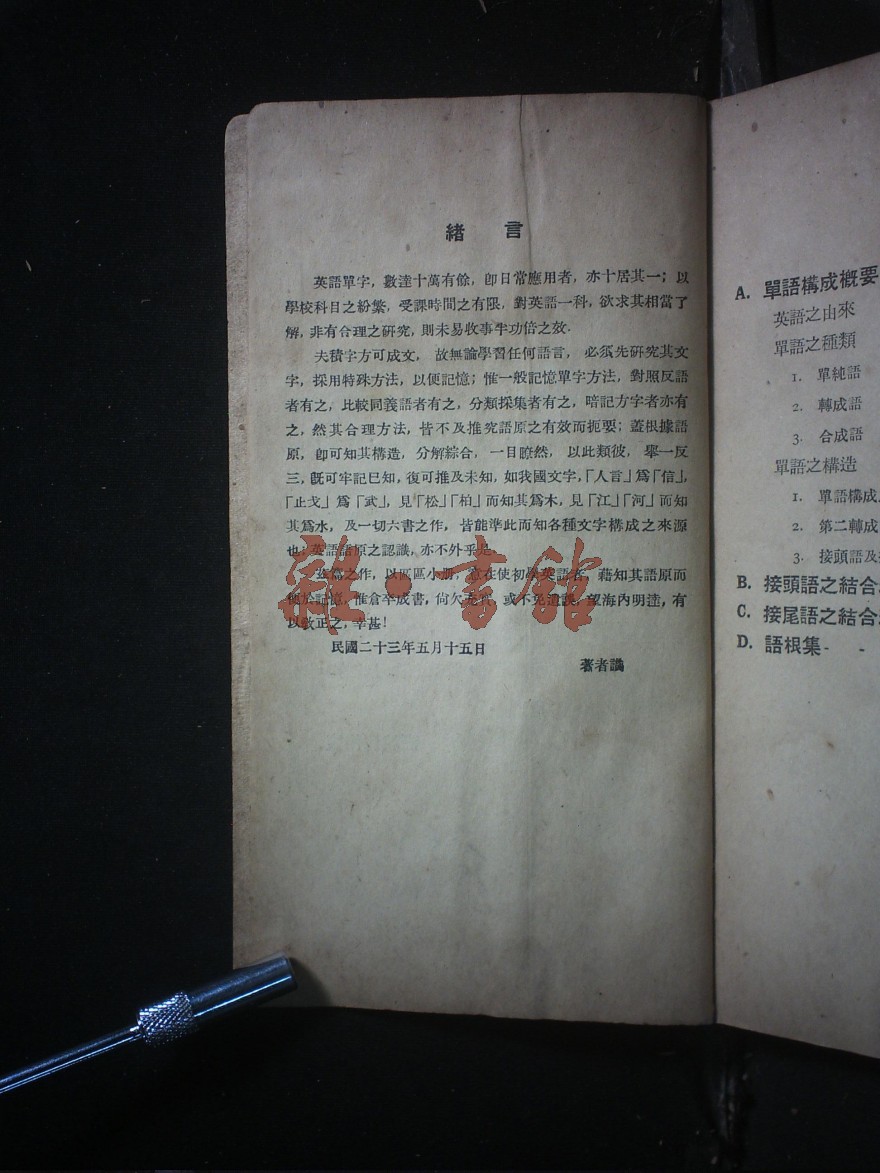 緒言
英語單字，數達十萬有餘，卽日常應用者，亦十居其一；以
學校科目之紛繁，受課時間之有限，對英語一科，欲求其相當了
解，非有合理之研究，則未易收事半功倍之效．
夫積字方可成文，故無論學習任何語言，必須先研究其文
字，採用特殊方法，以便記憶；惟一般記憶單字方法，對照反語
者有之，比較同義語者有之，分類採集者有之，暗記方字者亦有
之，然其合理方法，皆不及推究語原之有效而扼要；蓋根據語
原，卽可知其構造，分解綜合，一目瞭然，以此類彼，舉一反
三，旣可牢記已知，復可推及未知，如我國文字，「人言」爲「信」，
「止戈」爲「武」，見「松」「柏」而知其爲木，見「江」「河」而知
其爲水，及一切六書之作，皆能準此而知各種文字構成之來源
也；英語語原之認識，亦不外乎是．
之作，以區區小册，意在使初學英語者，藉知其語原而
便於記憶，惟倉卒成書，尙欠 或不免遺誤，望海內明達，有
以敎正之，幸甚！
民國二十三年五月十五日
著者識
雜·書館
A. 單語構成概要
英語之由來
單語之種類
1. 單純語
2. 轉成語
3. 合成語
單語之構造
1. 單語構成
2. 第二轉成
3. 接頭語及
B. 接頭語之結合
C. 接尾語之結合
D. 語根集- -